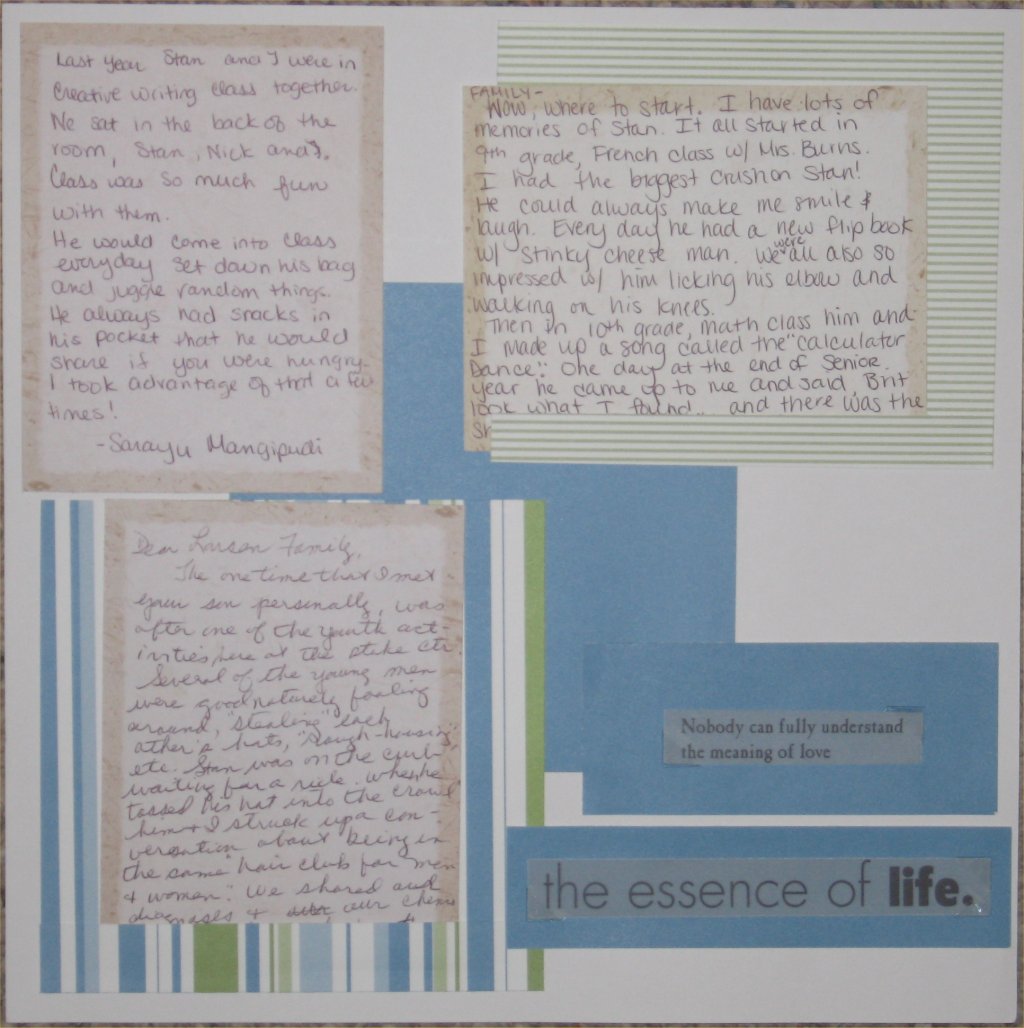 Last year Stan and I were in
creative writing class together.
We sat in the back of the
room, Stan, Nick and I.
Class was so much fun
with them.
He would come into class
everyday set down his bag
and juggle random things.
He always had snacks in
his pocket that he would
share if you were hungry.
I took advantage of that a few
times!
-Sarayu Mangipudi
FAMILY-
Wow, where to start. I have lots of
memories of Stan. It all started in
9th grade, French class w/ Mrs. Burns.
I had the biggest crush on Stan!
He could always make me smile &
laugh. Every day he had a new flip book
w/ stinky cheese man. We were all also so
impressed w/ him licking his elbow and
walking on his knees.
Then in 10th grade, math class him and
I made up a song called the "calculator
Dance". One day at the end of Senior
year he came up to me and said, Brit
look what I found.. and there was the
Dear Larson Family,
The one time that I met
your son personally, was
after one of the youth act-
ivities here at the stake ctr.
Several of the young men
were good naturely fooling
around, "stealing" each
other's hats, "rough-housing",
etc. Stan was on the curb
waiting for a ride. When he
tossed his hat into the crowd
him & I struck up a con-
versation about being in
the same "hair club for men
& women". We shared our
diagnoses & our chemo
Nobody can fully understand
the meaning of love
the essence of life.